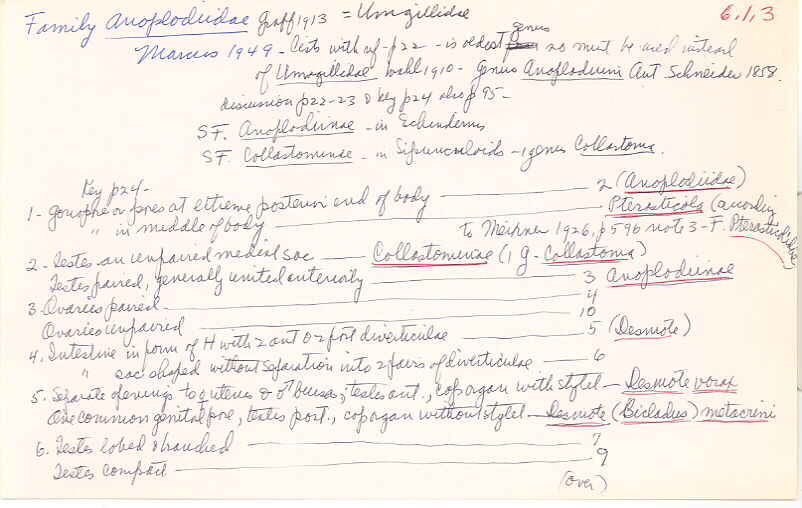 Family Anoplodiidae Graff 1913 = Umagillidae 6.1.3
Marcus 1949 - lists with ref - p22 - is oldest genus so must be used instead
of Umagillidae Wahl 1910 - Genus Anoplodium Ant. Schneider 1858.
discussion p22-23 & key p24 also p95 -
SF. Anoplodiinae - in Echinderms
SF. Collastominae - in Sipunculoids - 1 genus Collastoma.
Key p24 -
1 - Gonopore or pores at extreme posterior end of body 2 (Anoplodiidae)
" in middle of body Pterasticola (according
to Meixner 1926, p596 note 3 - F. Pterasticolidae)
2. Testes an unpaired medial sac Collastominae (1 g - Collastoma)
Testes paired, generally united anteriorly 3 Anoplodiinae
3. Ovaries paired 4
Ovaries unpaired 10
4. Intestine in form of H with 2 ant & 2 post diverticulae 5 (Desmote)
" sac shaped without separation into 2 pairs of diverticulae 6
5. Separate openings to uterus & ♂ bursa; testes ant., cop organ with stylet - Desmote vorax
One common genital pore, testes post., cop organ without stylet - Desmote (Bicladus) metacrini
6. Testes lobed & branched 7
Testes compact 9
(over)